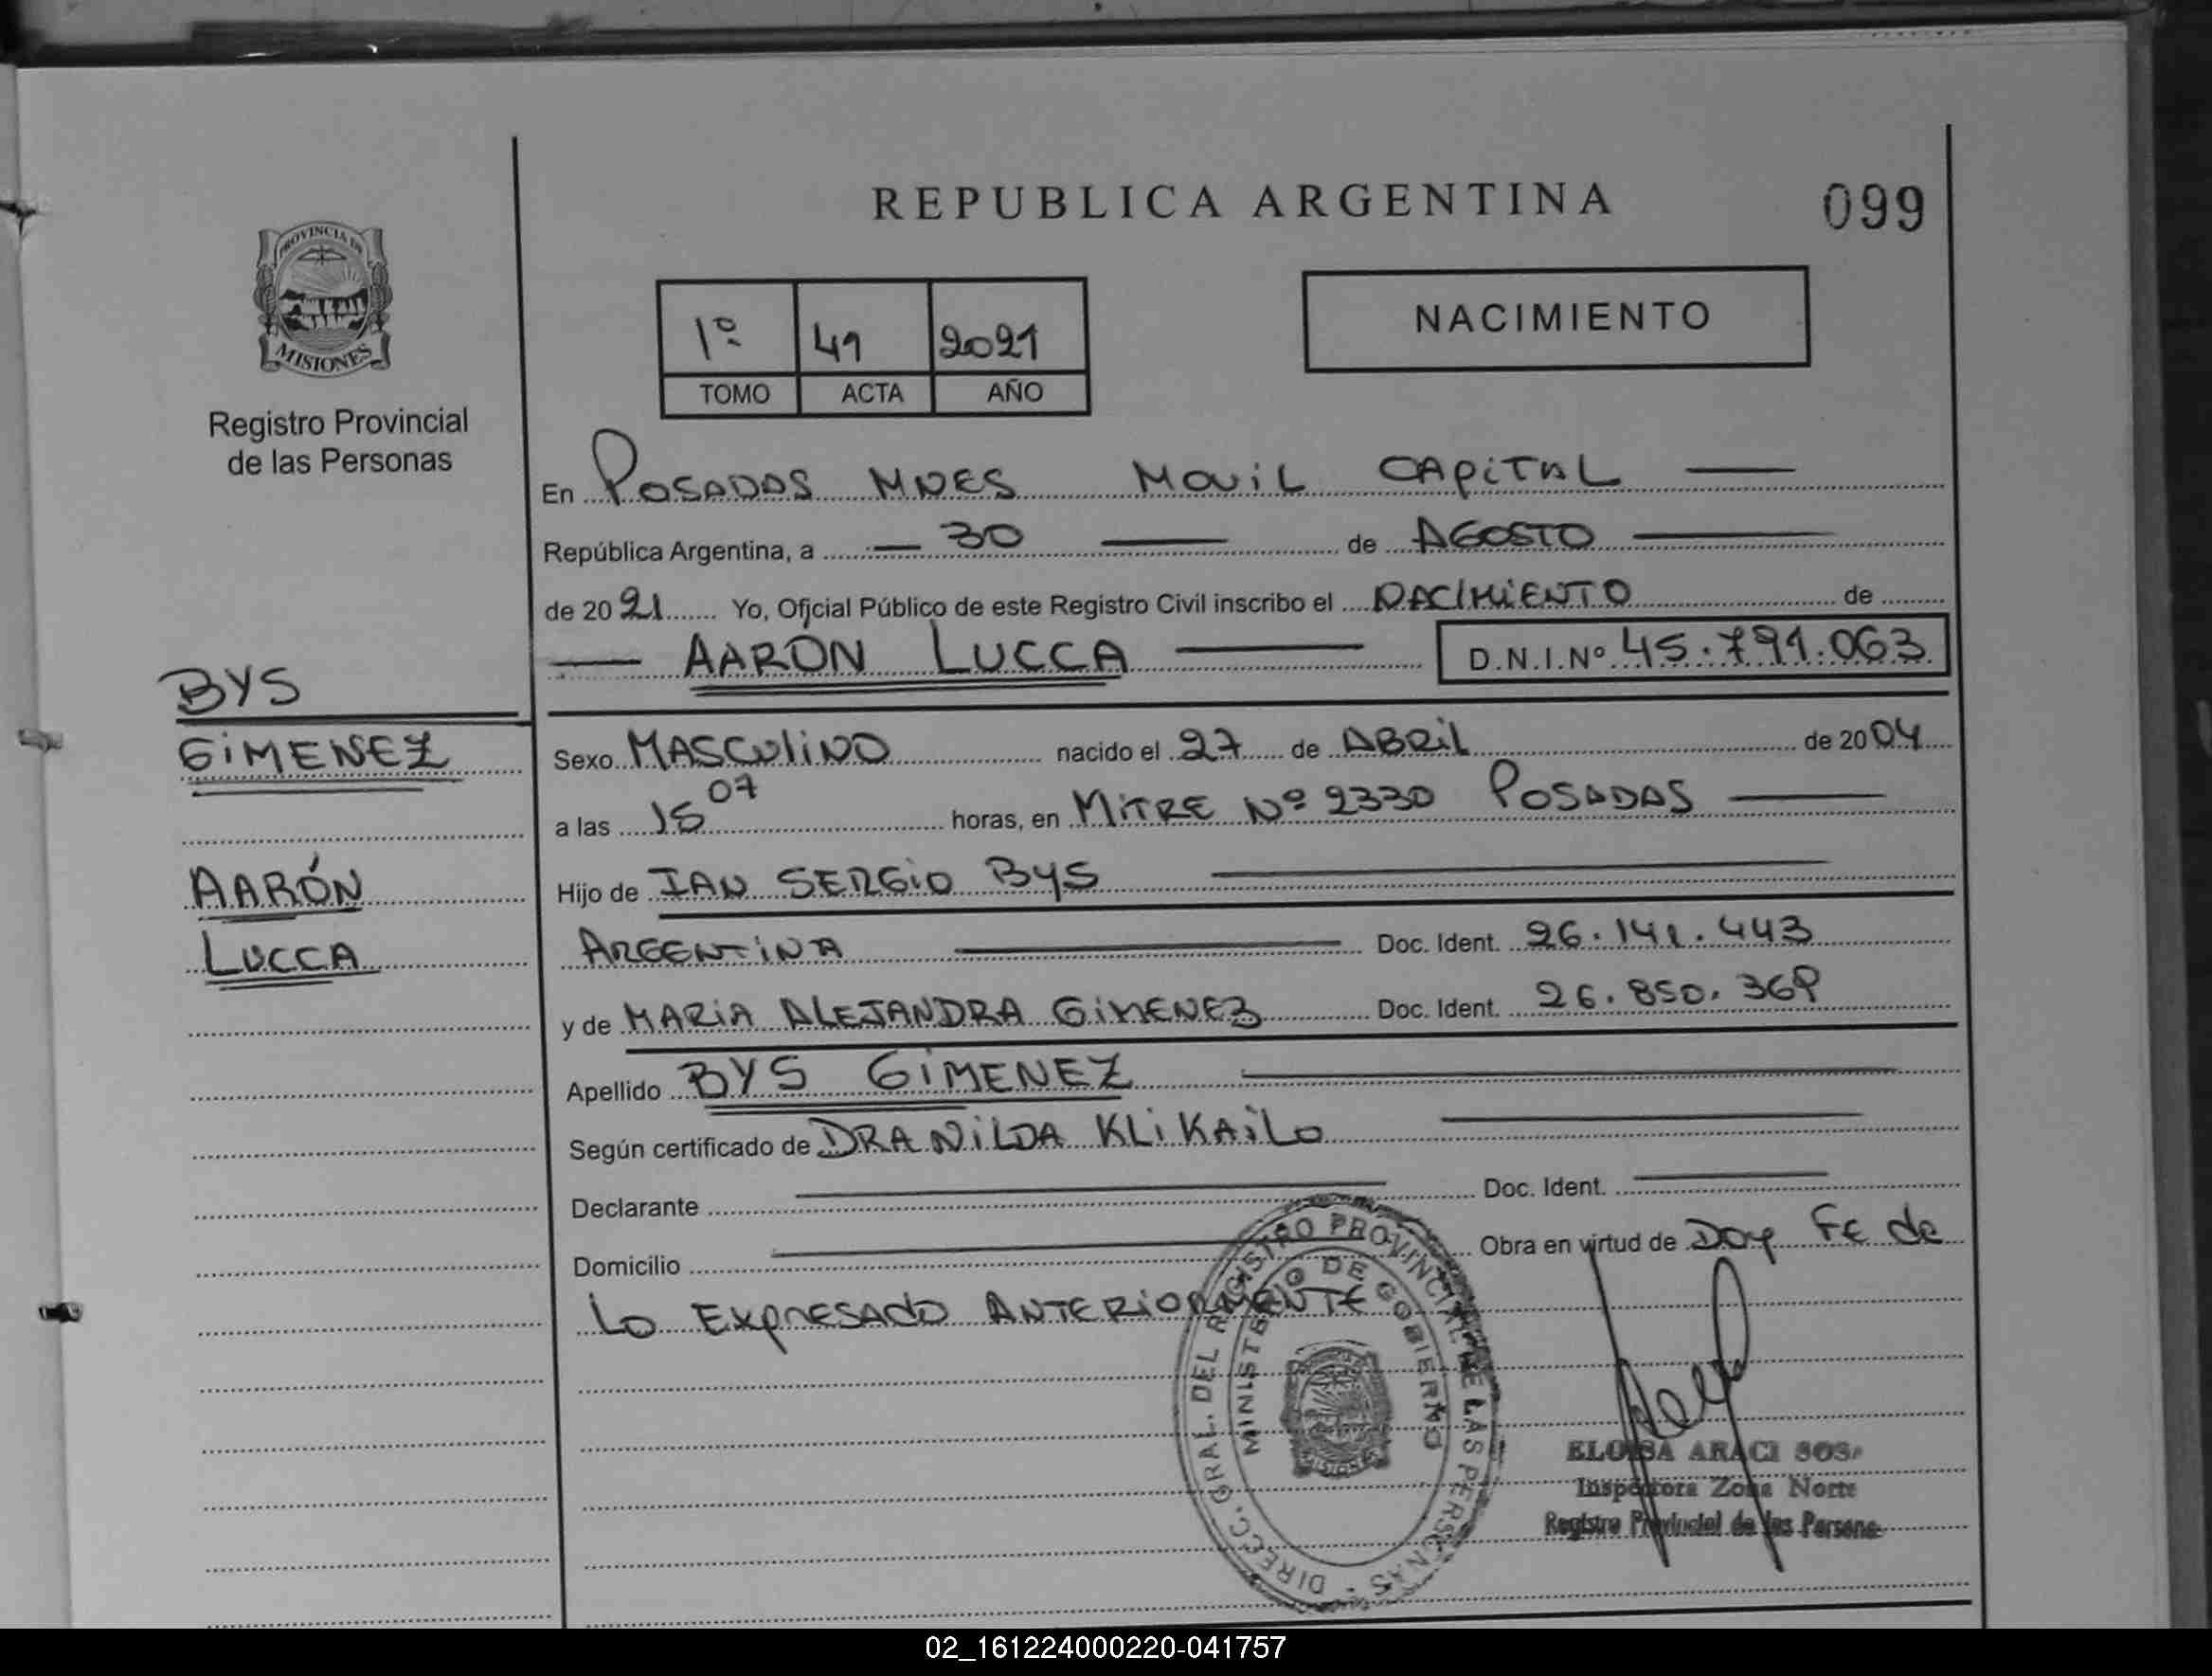 REPUBLICA ARGENTINA
099
PROVINCIA DE
MISIONES
Registro Provincial
de las Personas
1º 41 2021
TOMO ACTA AÑO
NACIMIENTO
En POSADAS MNES MOViL CAPiTAL
República Argentina, a 30 de AGOSTO
de 2021 Yo, Oficial Público de este Registro Civil inscribo el NACIMiENTO de
AARÓN LUCCA D.N.I.Nº 45.791.063
BYS
GiMENEZ
AARÓN
LUCCA
Sexo MASCULiNO nacido el 27 de ABRiL de 2004
a las 15 07 horas, en MiTRE Nº 2330 POSADAS
Hijo de IAN SERGiO BYS
ARGENTiNA Doc. Ident. 26.141.443
y de MARiA ALEJANDRA GiMENEZ Doc. Ident. 26.850.369
Apellido BYS GiMENEZ
Según certificado de DRA NiLDA KLiKAiLO
Declarante Doc. Ident.
Domicilio Obra en virtud de Doy FE de
Lo EXpRESAdo ANTERiORMENTE
DIRECC. GRAL. DEL REGISTRO PROVINCIAL DE LAS PERSONAS
MINISTERIO DE GOBIERNO
MISIONES
ELOISA ARACI SOSA
Inspectora Zona Norte
Registro Provincial de las Personas
02_161224000220-041757